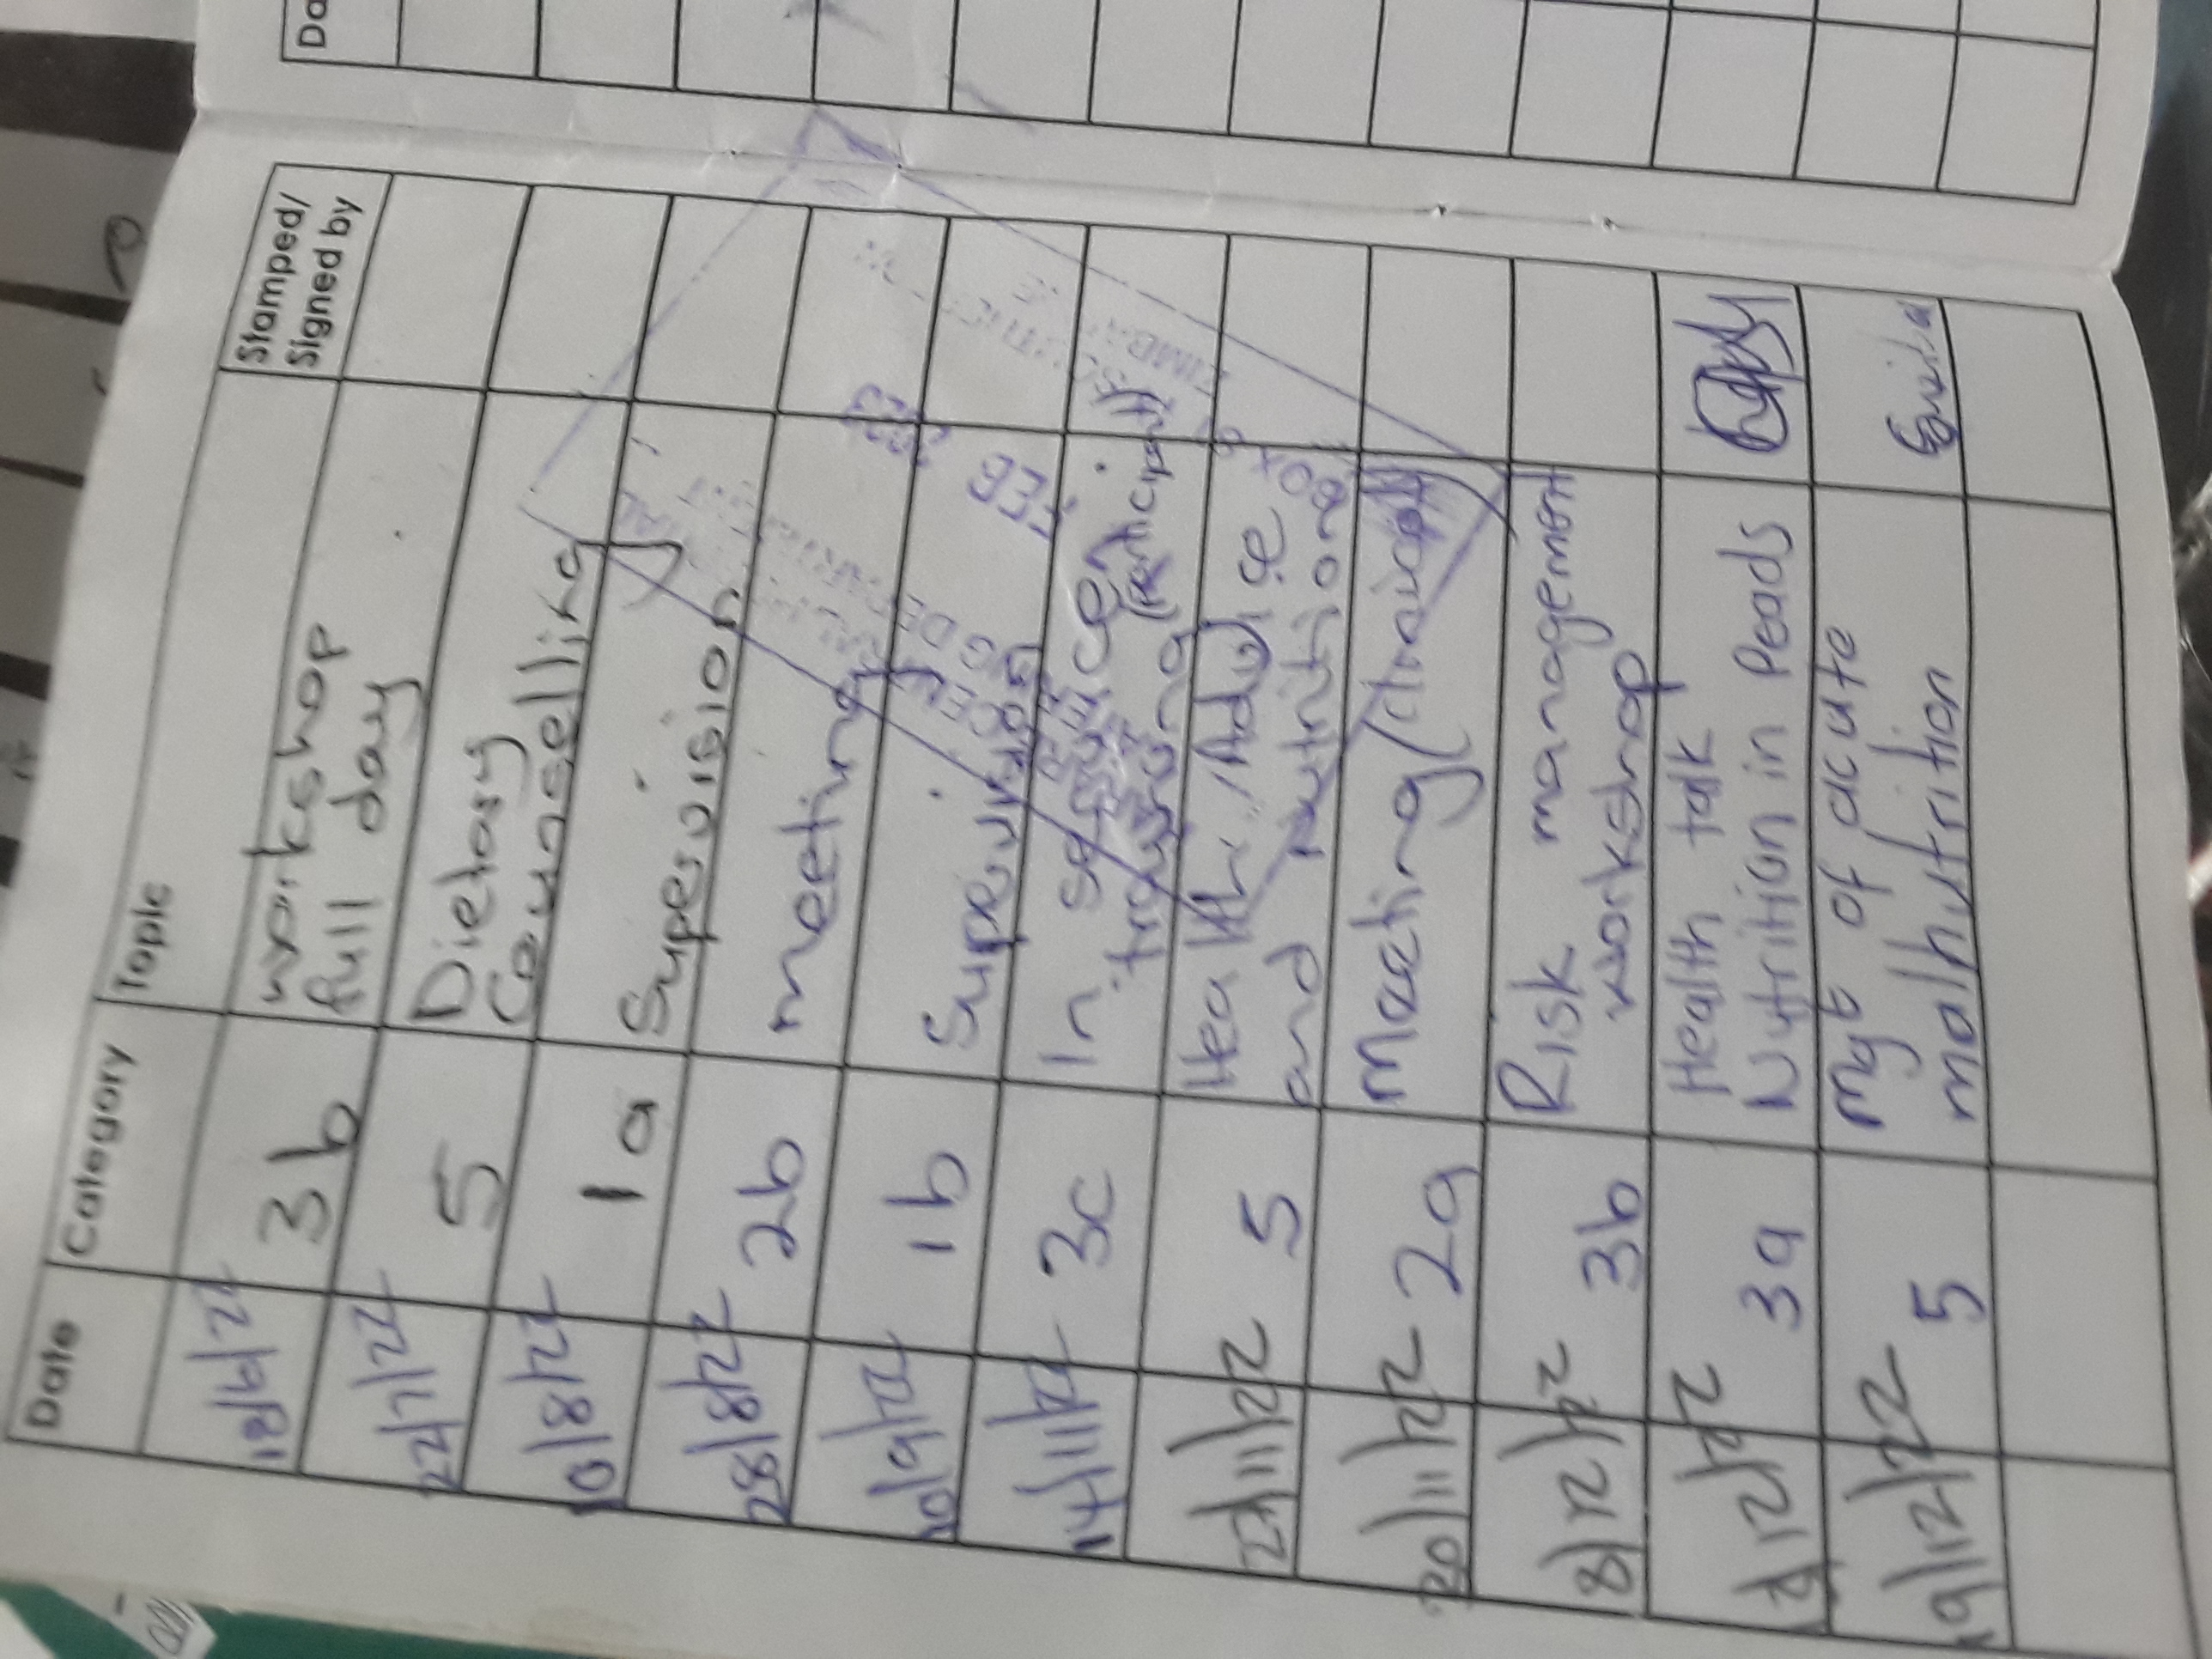 Date Category Topic Stamped/
Signed by
18/6/22 3b workshop
full day
22/7/22 5 Dietary
Counselling
10/8/22 1a Supesvision
28/8/22 2b meeting
10/9/22 1b Supervision
14/11/22 3c In service
training (participant)
22/11/22 5 Health /Advise
and nutrition
30/11/22 2a Meeting
8/12/22 3b Risk management
workshop
12/22 3a Health talk
Nutrition in Peads
19/12/22 5 Mgt of acute
malnutrition
CENTRAL HOSPITAL
CATERING DEPARTMENT
FEB 2023
BOX
ZIMBABWE
Da